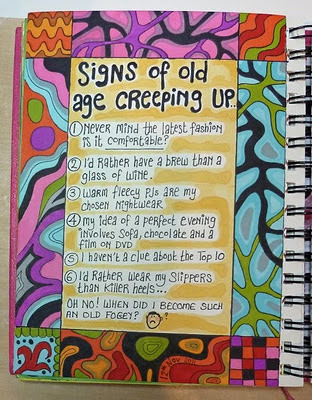 Signs of old
age creeping up..
① Never mind the latest fashion
is it comfortable?
② I'd rather have a brew than a
glass of wine.
③ Warm fleecy PJs are my
chosen nightwear
④ my idea of a perfect evening
involves Sofa, chocolate and a
film on DVD
⑤ I haven't a clue about the Top 10
⑥ I'd Rather wear my Slippers
than killer heels...
OH NO! WHEN DID I BECOME SUCH
AN OLD FOGEY?